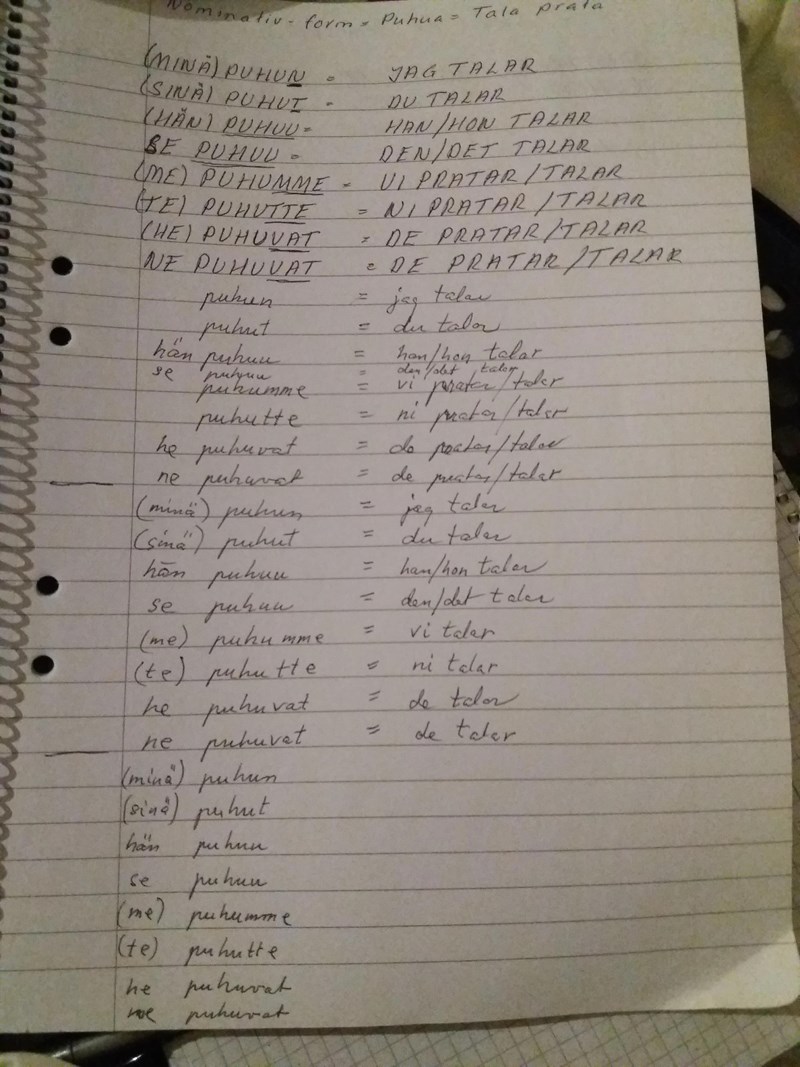 Nominativ-form = Puhua = Tala prata
(MINÄ) PUHUN = JAG TALAR
(SINÄ) PUHUT = DU TALAR
(HÄN) PUHUU = HAN/HON TALAR
SE PUHUU = DEN/DET TALAR
(ME) PUHUMME = VI PRATAR/TALAR
(TE) PUHUTTE = NI PRATAR/TALAR
(HE) PUHUVAT = DE PRATAR/TALAR
NE PUHUVAT = DE PRATAR/TALAR
puhun = jag talar
puhut = du talar
hän puhuu = han/hon talar
se puhuu = den/det talar
puhumme = vi pratar/talar
puhutte = ni pratar/talar
he puhuvat = de pratar/talar
ne puhuvat = de pratar/talar
(minä) puhun = jag talar
(sinä) puhut = du talar
hän puhuu = han/hon talar
se puhuu = den/det talar
(me) puhumme = vi talar
(te) puhutte = ni talar
he puhuvat = de talar
ne puhuvat = de talar
(minä) puhun
(sinä) puhut
hän puhuu
se puhuu
(me) puhumme
(te) puhutte
he puhuvat
ne puhuvat